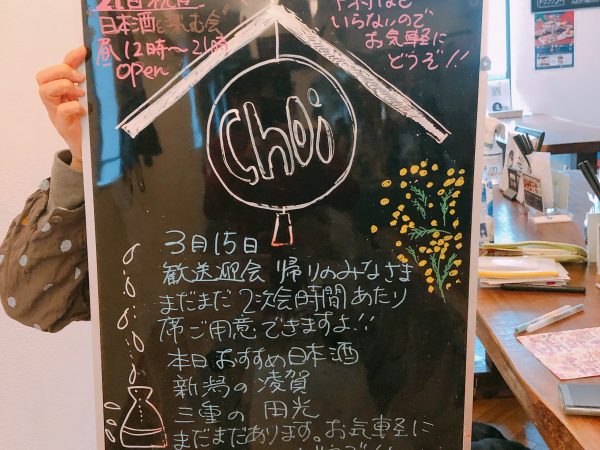 21日祝日
日本酒に楽む会
昼12時〜21時
open
いらないので
お気軽に
どうぞ!!
choi
3月15日
歓送迎会 帰りのみなさま
まだまだ 2次会時間あたり
席ご用意できますよ!!
本日おすすめ日本酒
新潟の 凌賀
三重の 田光
まだまだあります。お気軽に